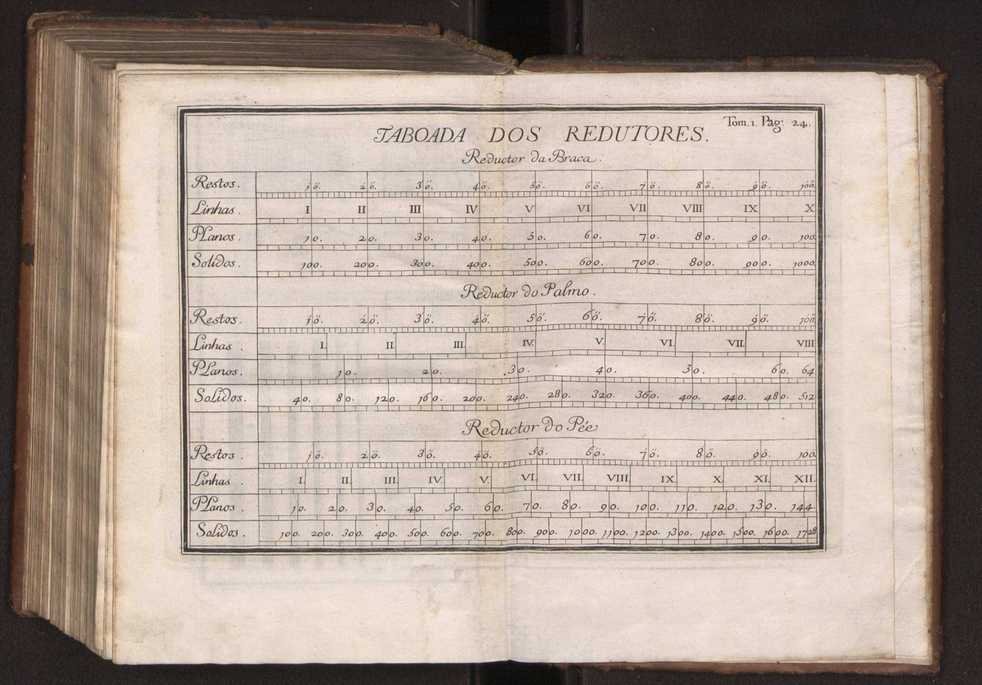 Tom. 1. Pag: 24.
TABOADA DOS REDUTORES.
Reductor da Braca.
Restos. 10. 20. 30. 40. 50. 60. 70. 80. 90. 100.
Linhas. I II III IV V VI VII VIII IX X
PLanos. 10. 20. 30. 40. 50. 60. 70. 80. 90. 100.
Solidos. 100. 200. 300. 400. 500. 600. 700. 800. 900. 1000.
Reductor do Palmo.
Restos. 10. 20. 30. 40. 50. 60. 70. 80. 90. 100.
Linhas. I. II. III. IV. V. VI. VII. VIII
PLanos. 10. 20. 30. 40. 50. 60. 64
Solidos. 40. 80. 120. 160. 200. 240. 280. 320. 360. 400. 440. 480. 512
Reductor do Pée
Restos. 10. 20. 30. 40. 50. 60. 70. 80. 90. 100.
Linhas. I. II. III. IV. V. VI. VII. VIII. IX. X. XI. XII.
PLanos. 10. 20. 30. 40. 50. 60. 70. 80. 90. 100. 110. 120. 130. 144.
Solidos. 100. 200. 300. 400. 500. 600. 700. 800. 900. 1000. 1100. 1200. 1300. 1400. 1500. 1600. 1728